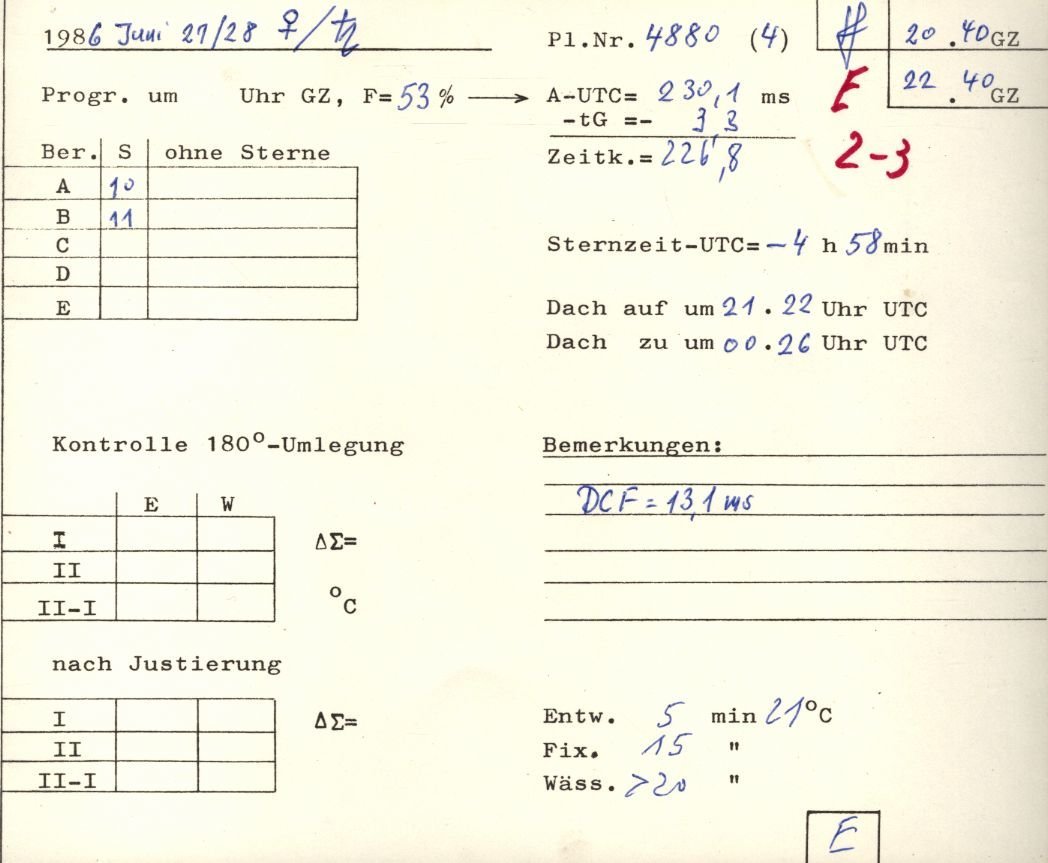 1986 Juni 27/28 ♀/♄ Pl.Nr. 4880 (4) # 20.40 GZ
22.40 GZ
Progr. um Uhr GZ, F=53% → A-UTC= 230,1 ms E
-tG =- 3,3
Ber. S ohne Sterne Zeitk.= 226,8 2-3
A 10
B 11
C Sternzeit-UTC= -4 h 58 min
D
E Dach auf um 21.22 Uhr UTC
Dach zu um 00.26 Uhr UTC
Kontrolle 180°-Umlegung
Bemerkungen:
DCF = 13,1 ms
E W
I ΔΣ=
II
II-I °C
nach Justierung
I ΔΣ=
II
II-I
Entw. 5 min 21°C
Fix. 15 "
Wäss. >20 "
E